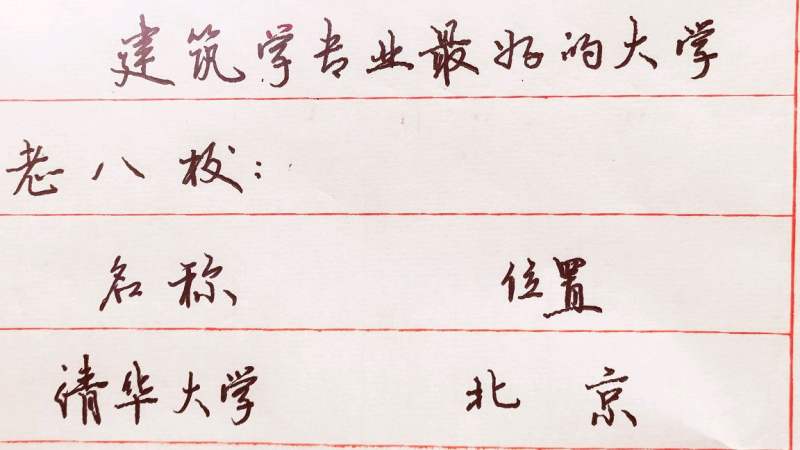 建筑学专业最好的大学
老八校：
名称 位置
清华大学 北京